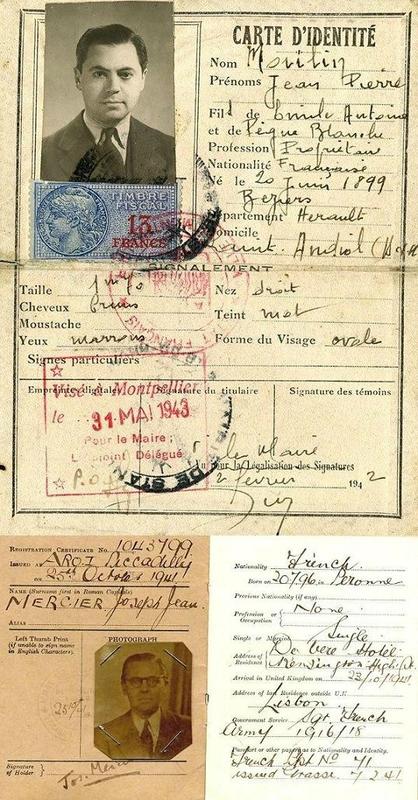 CARTE D'IDENTITÉ
Nom Moulin
Prénoms Jean Pierre
Fils de Emile Antoine
et de Pègue Blanche
Profession Propriétaire
Nationalité Française
Né le 20 Juin 1899
Beziers
Département Herault
Domicile
Saint. Andiol
TIMBRE FISCAL
13
FRANCS
SIGNALEMENT
Taille
Cheveux Bruns
Moustache
Yeux marrons
Signes particuliers
Nez droit
Teint mat
Forme du Visage ovale
Empreinte digitale
Signature du titulaire
Signature des témoins
Visé à Montpellier
le 31 MAI 1943
Pour le Maire;
L'Adjoint Délégué
le Maire
pour la Légalisation des Signatures
2 février 1942
REGISTRATION CERTIFICATE No. 1043799
ISSUED AT ARO1 Piccadilly
ON 25th October 1941
NAME (Surname first in Roman Capitals)
MERCIER Joseph Jean.
ALIAS
Left Thumb Print
(if unable to sign name
in English Characters).
PHOTOGRAPH
Signature
of Holder
Jos. Mercier
Nationality French
Born on 20/7/96 in Peronne
Previous Nationality (if any)
Profession or Occupation None
Single or Married Single
Address of Residence De Vere Hotel
Kensington High St.
Arrived in United Kingdom on 23/10/1941
Address of last Residence outside U.K.
Lisbon
Government Service Sgt. French
Army 1916/18
Passport or other papers as to Nationality and Identity.
French Ppt No 71
issued Grasse. 7 2 41